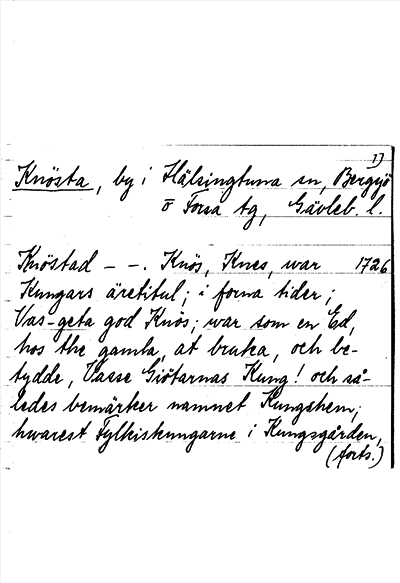 1)
Knösta, by i Hälsingtuna sn, Bergsjö
o Forsa tg, Gävleb. l.
Knöstad - -. Knös, Knes, war 1726
Kungars äretitul; i forna tider;
Vas-geta god Knös; war som en Ed,
hos the gamla, at bruka, och be-
tydde, Vasse Giötarnas Kung! och så-
ledes bemärker namnet Kungshem;
hwarest Fylkiskungarne i Kungsgården,
(forts.)